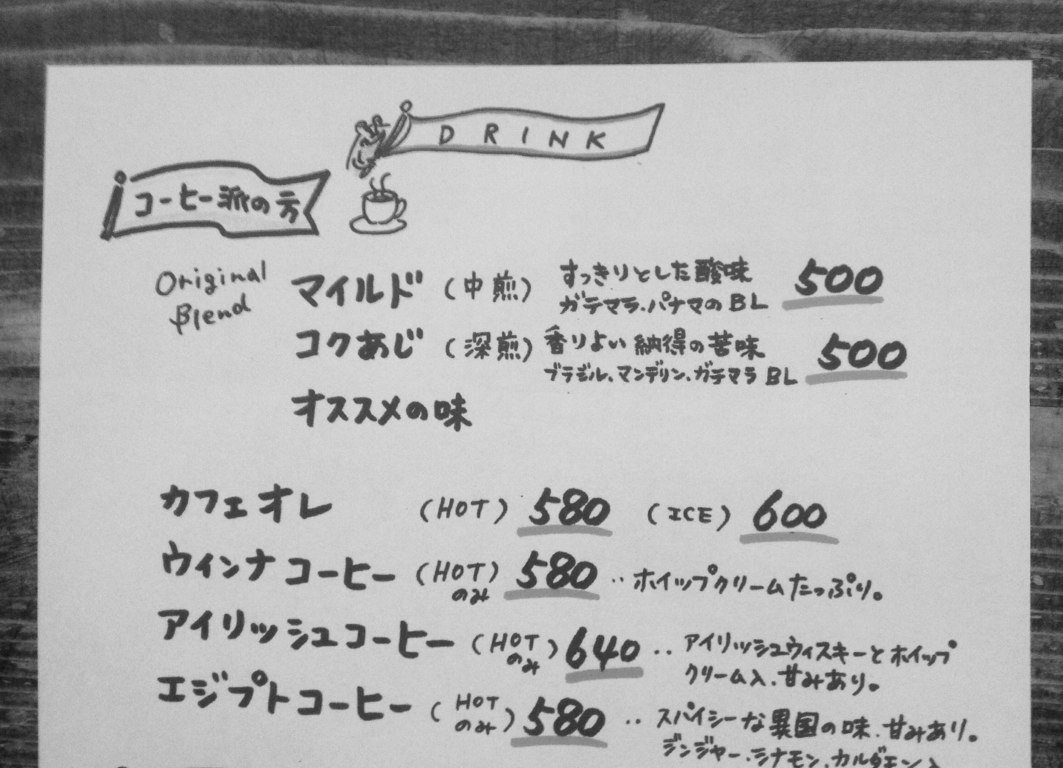 DRINK
コーヒー派の方
Original
Blend
マイルド (中煎) すっきりとした酸味 500
ガテマラ、パナマのBL
コクあじ (深煎) 香りよい納得の苦味 500
ブラジル、マンデリン、ガテマラ BL
オススメの味
カフェオレ (HOT) 580 (ICE) 600
ウィンナコーヒー (HOTのみ) 580 ‥ホイップクリームたっぷり。
アイリッシュコーヒー (HOTのみ) 640 ‥アイリッシュウィスキーとホイップ
クリーム入、甘みあり。
エジプトコーヒー (HOTのみ) 580 ‥スパイシーな異国の味、甘みあり。
ジンジャー、シナモン、カルダモン入